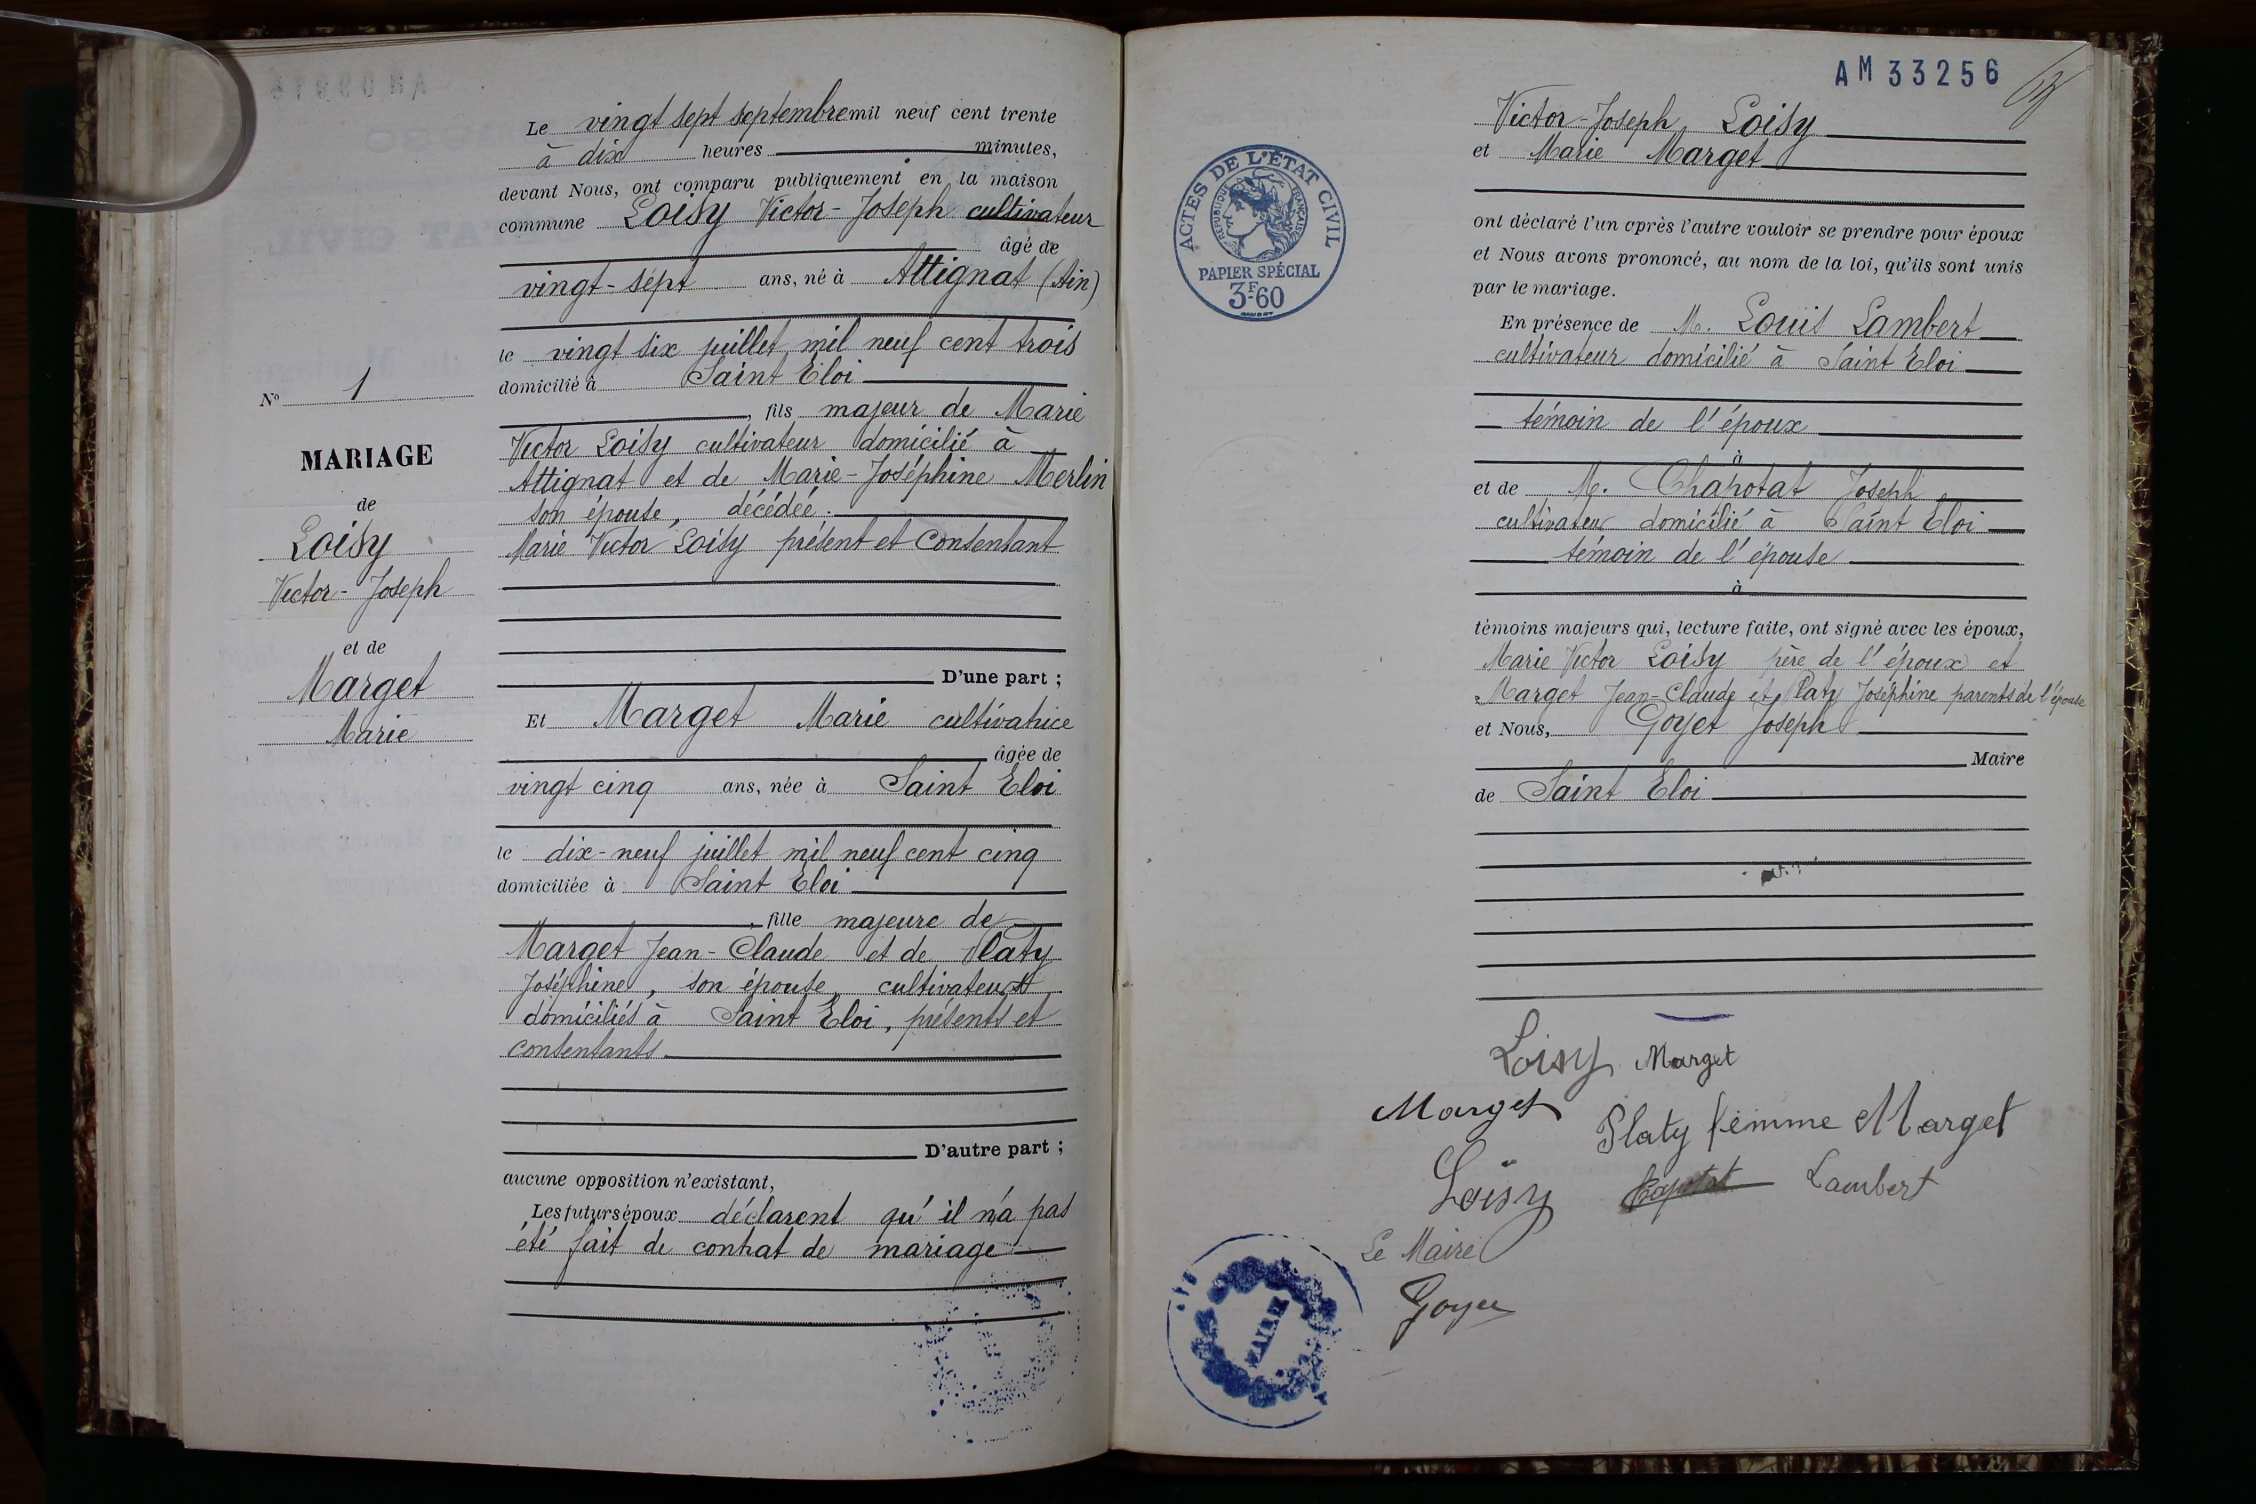 Le vingt sept septembre mil neuf cent trente
à dix heures minutes,
devant Nous, ont comparu publiquement en la maison
commune Loisy Victor-Joseph cultivateur
âgé de
vingt-sept ans, né à Attignat (Ain)
le vingt six juillet mil neuf cent trois
domicilié à Saint Eloi
, fils majeur de Marie
Victor Loisy cultivateur domicilié à
Attignat et de Marie-Joséphine Merlin
son épouse, décédée.
Marie Victor Loisy présent et consentant
D'une part ;
N° 1
MARIAGE
de
Loisy
Victor-Joseph
et de
Marget
Marie
Et Marget Marie cultivatrice
âgée de
vingt cinq ans, née à Saint Eloi
le dix-neuf juillet mil neuf cent cinq
domiciliée à Saint Eloi
, fille majeure de
Marget Jean-Claude et de Platy
Joséphine, son épouse, cultivateurs
domiciliés à Saint Eloi, présents et
consentants
D'autre part ;
aucune opposition n'existant,
Les futurs époux déclarent qu'il n'a pas
été fait de contrat de mariage
AM 33256
ACTES DE L'ÉTAT CIVIL
RÉPUBLIQUE FRANÇAISE
PAPIER SPÉCIAL
3F60
Victor-Joseph Loisy
et Marie Marget
ont déclaré l'un après l'autre vouloir se prendre pour époux
et Nous avons prononcé, au nom de la loi, qu'ils sont unis
par le mariage.
En présence de M. Louis Lambert
cultivateur domicilié à Saint Eloi
témoin de l'époux
à
et de M. Chapotat Joseph
cultivateur domicilié à Saint Eloi
témoin de l'épouse
à
témoins majeurs qui, lecture faite, ont signé avec les époux,
Marie Victor Loisy père de l'époux et
Marget Jean-Claude et Platy Joséphine parents de l'épouse
et Nous, Goyet Joseph
Maire
de Saint Eloi
Loisy Marget
Marget Platy femme Marget
Loisy Lambert
Le Maire
Goyet
MAIRIE